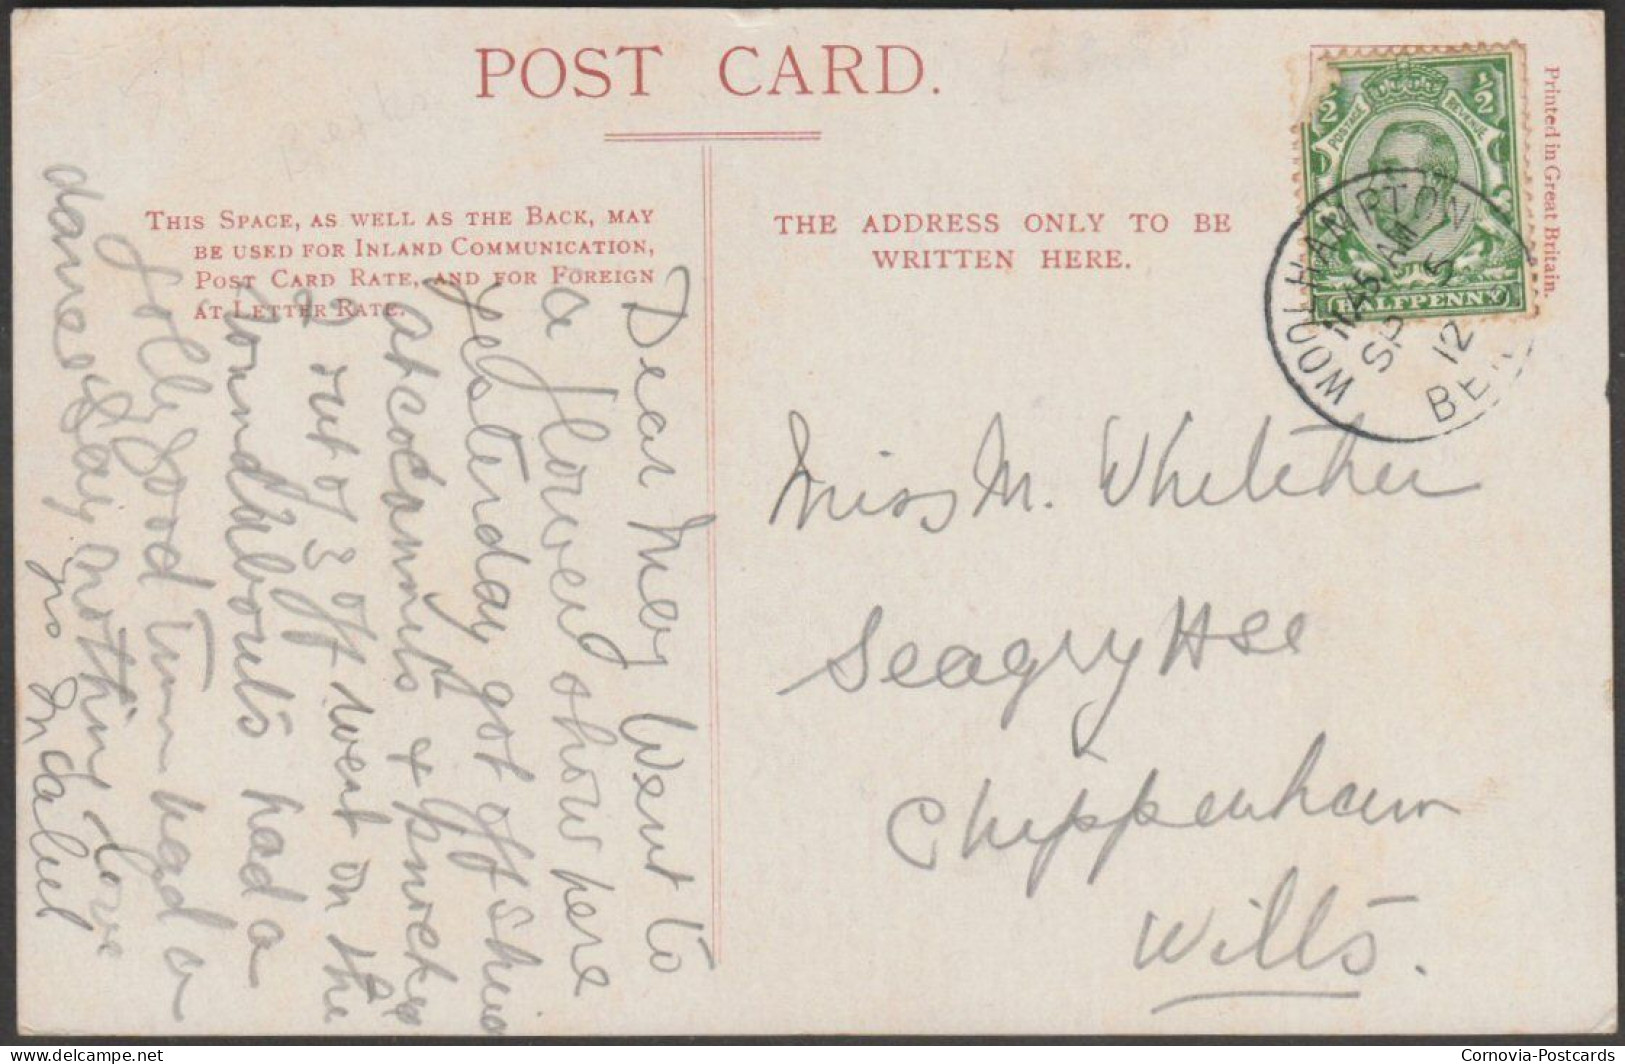 POST CARD.
Printed in Great Britain.
THIS SPACE, AS WELL AS THE BACK, MAY
BE USED FOR INLAND COMMUNICATION,
POST CARD RATE, AND FOR FOREIGN
AT LETTER RATE.
THE ADDRESS ONLY TO BE
WRITTEN HERE.
1/2 1/2
POSTAGE REVENUE
HALFPENNY
WOOLHAMPTON
11 45 AM
SP 5
12
BE
Miss M. Whitcher
Seagry Hse
Chippenham
Wills.
Dear May Went to
a flower show here
yesterday got off Shies
at cocoanuts & knocked
2 out of 3 off went on the
roundabouts had a
jolly good time had a
dance &
say nothing love
yrs Mabel
delcampe.net
Cornovia-Postcards